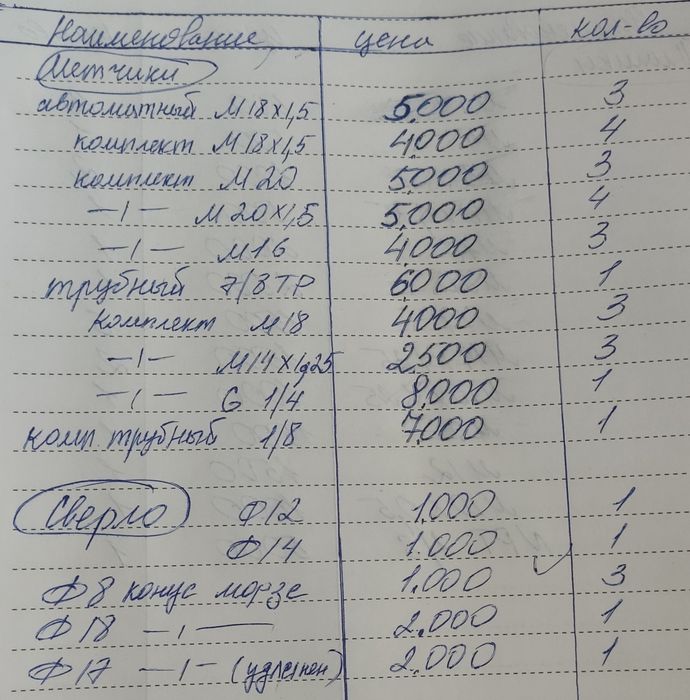 Наименование цена кол-во
Метчики
автоматный М18х1,5 5.000 3
комплект М18х1,5 4000 4
комплект М20 5.000 3
—ı— М20х1,5 5.000 4
—ı— М16 4.000 3
трубный 7/8 ТР 6000 1
комплект М18 4000 3
—ı— М14х1,25 2500 3
—ı— G 1/4 8.000 1
комп трубный 1/8 7.000 1
Сверло Ф12 1.000 1
Ф14 1.000 1
Ф8 конус морзе 1.000 3
Ф18 —ı— 2.000 1
Ф17 —ı— (удлинен) 2.000 1